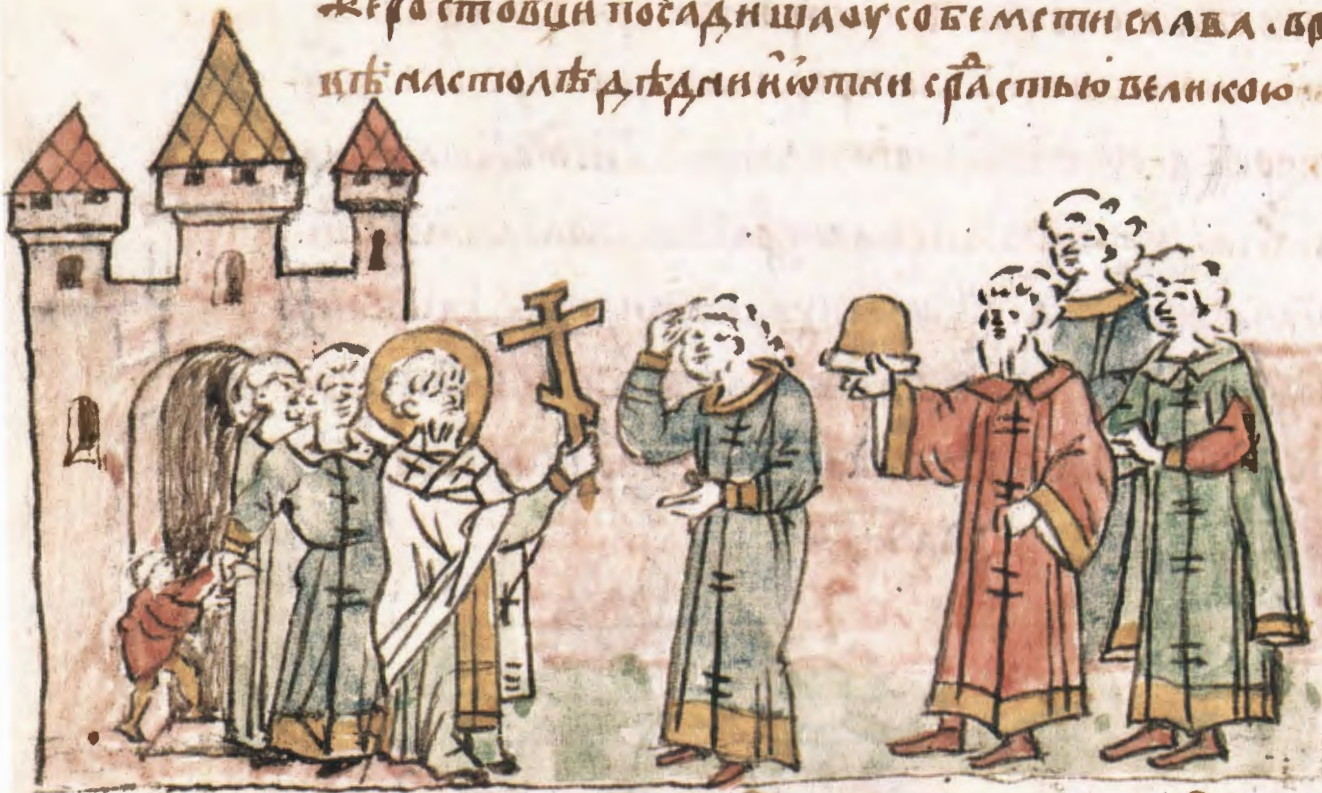 жеростовци посадишаоу собе мстислава · вр
кѣ настолѣ дѣдни ниѡтни срⷣастью великою